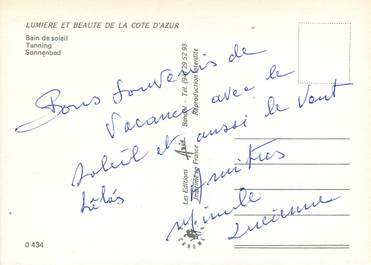 LUMIERE ET BEAUTE DE LA COTE D'AZUR
Bain de soleil
Tanning
Sonnenbad
Bons souvenirs de
Vacances avec le
soleil et aussi le vent
hélas
Amitiés
Lucienne
Les Editions Bandol - Tél. (94) 29 52 98
Imprimé en France Reproduction interdite
0 434